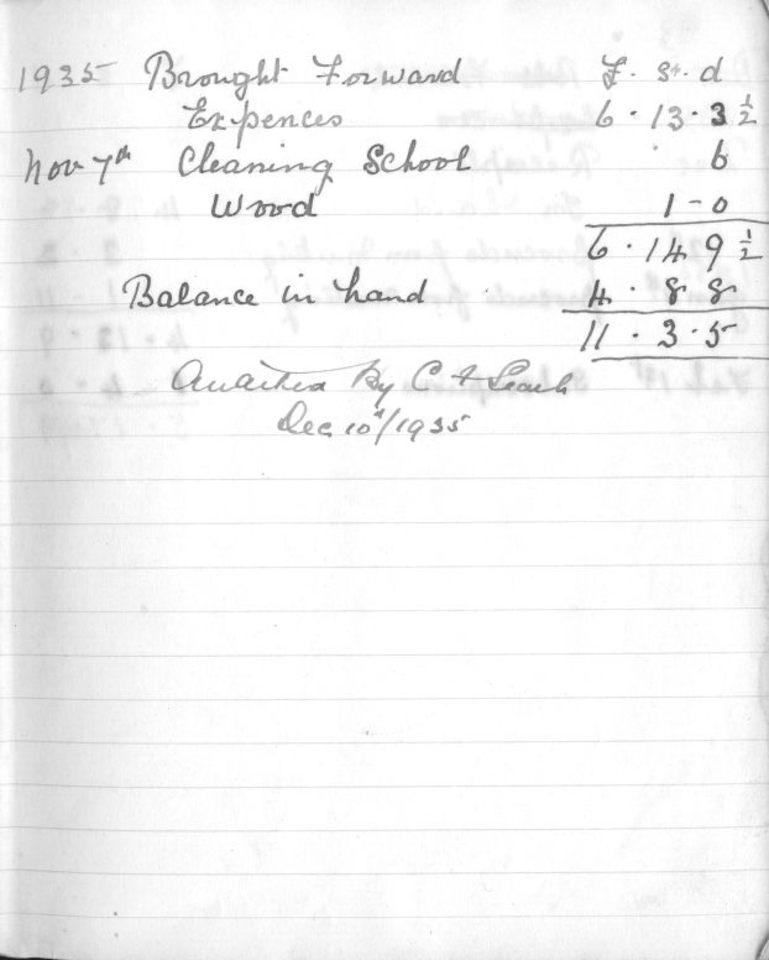 1935 Brought Forward £. s. d
Expences 6 . 13 . 3 ½
Nov 7th Cleaning School 6
Wood 1 - 0
6 . 14 9 ½
Balance in hand 4 . 8 8
11 . 3 . 5
By C Leach
Dec 10th/1935